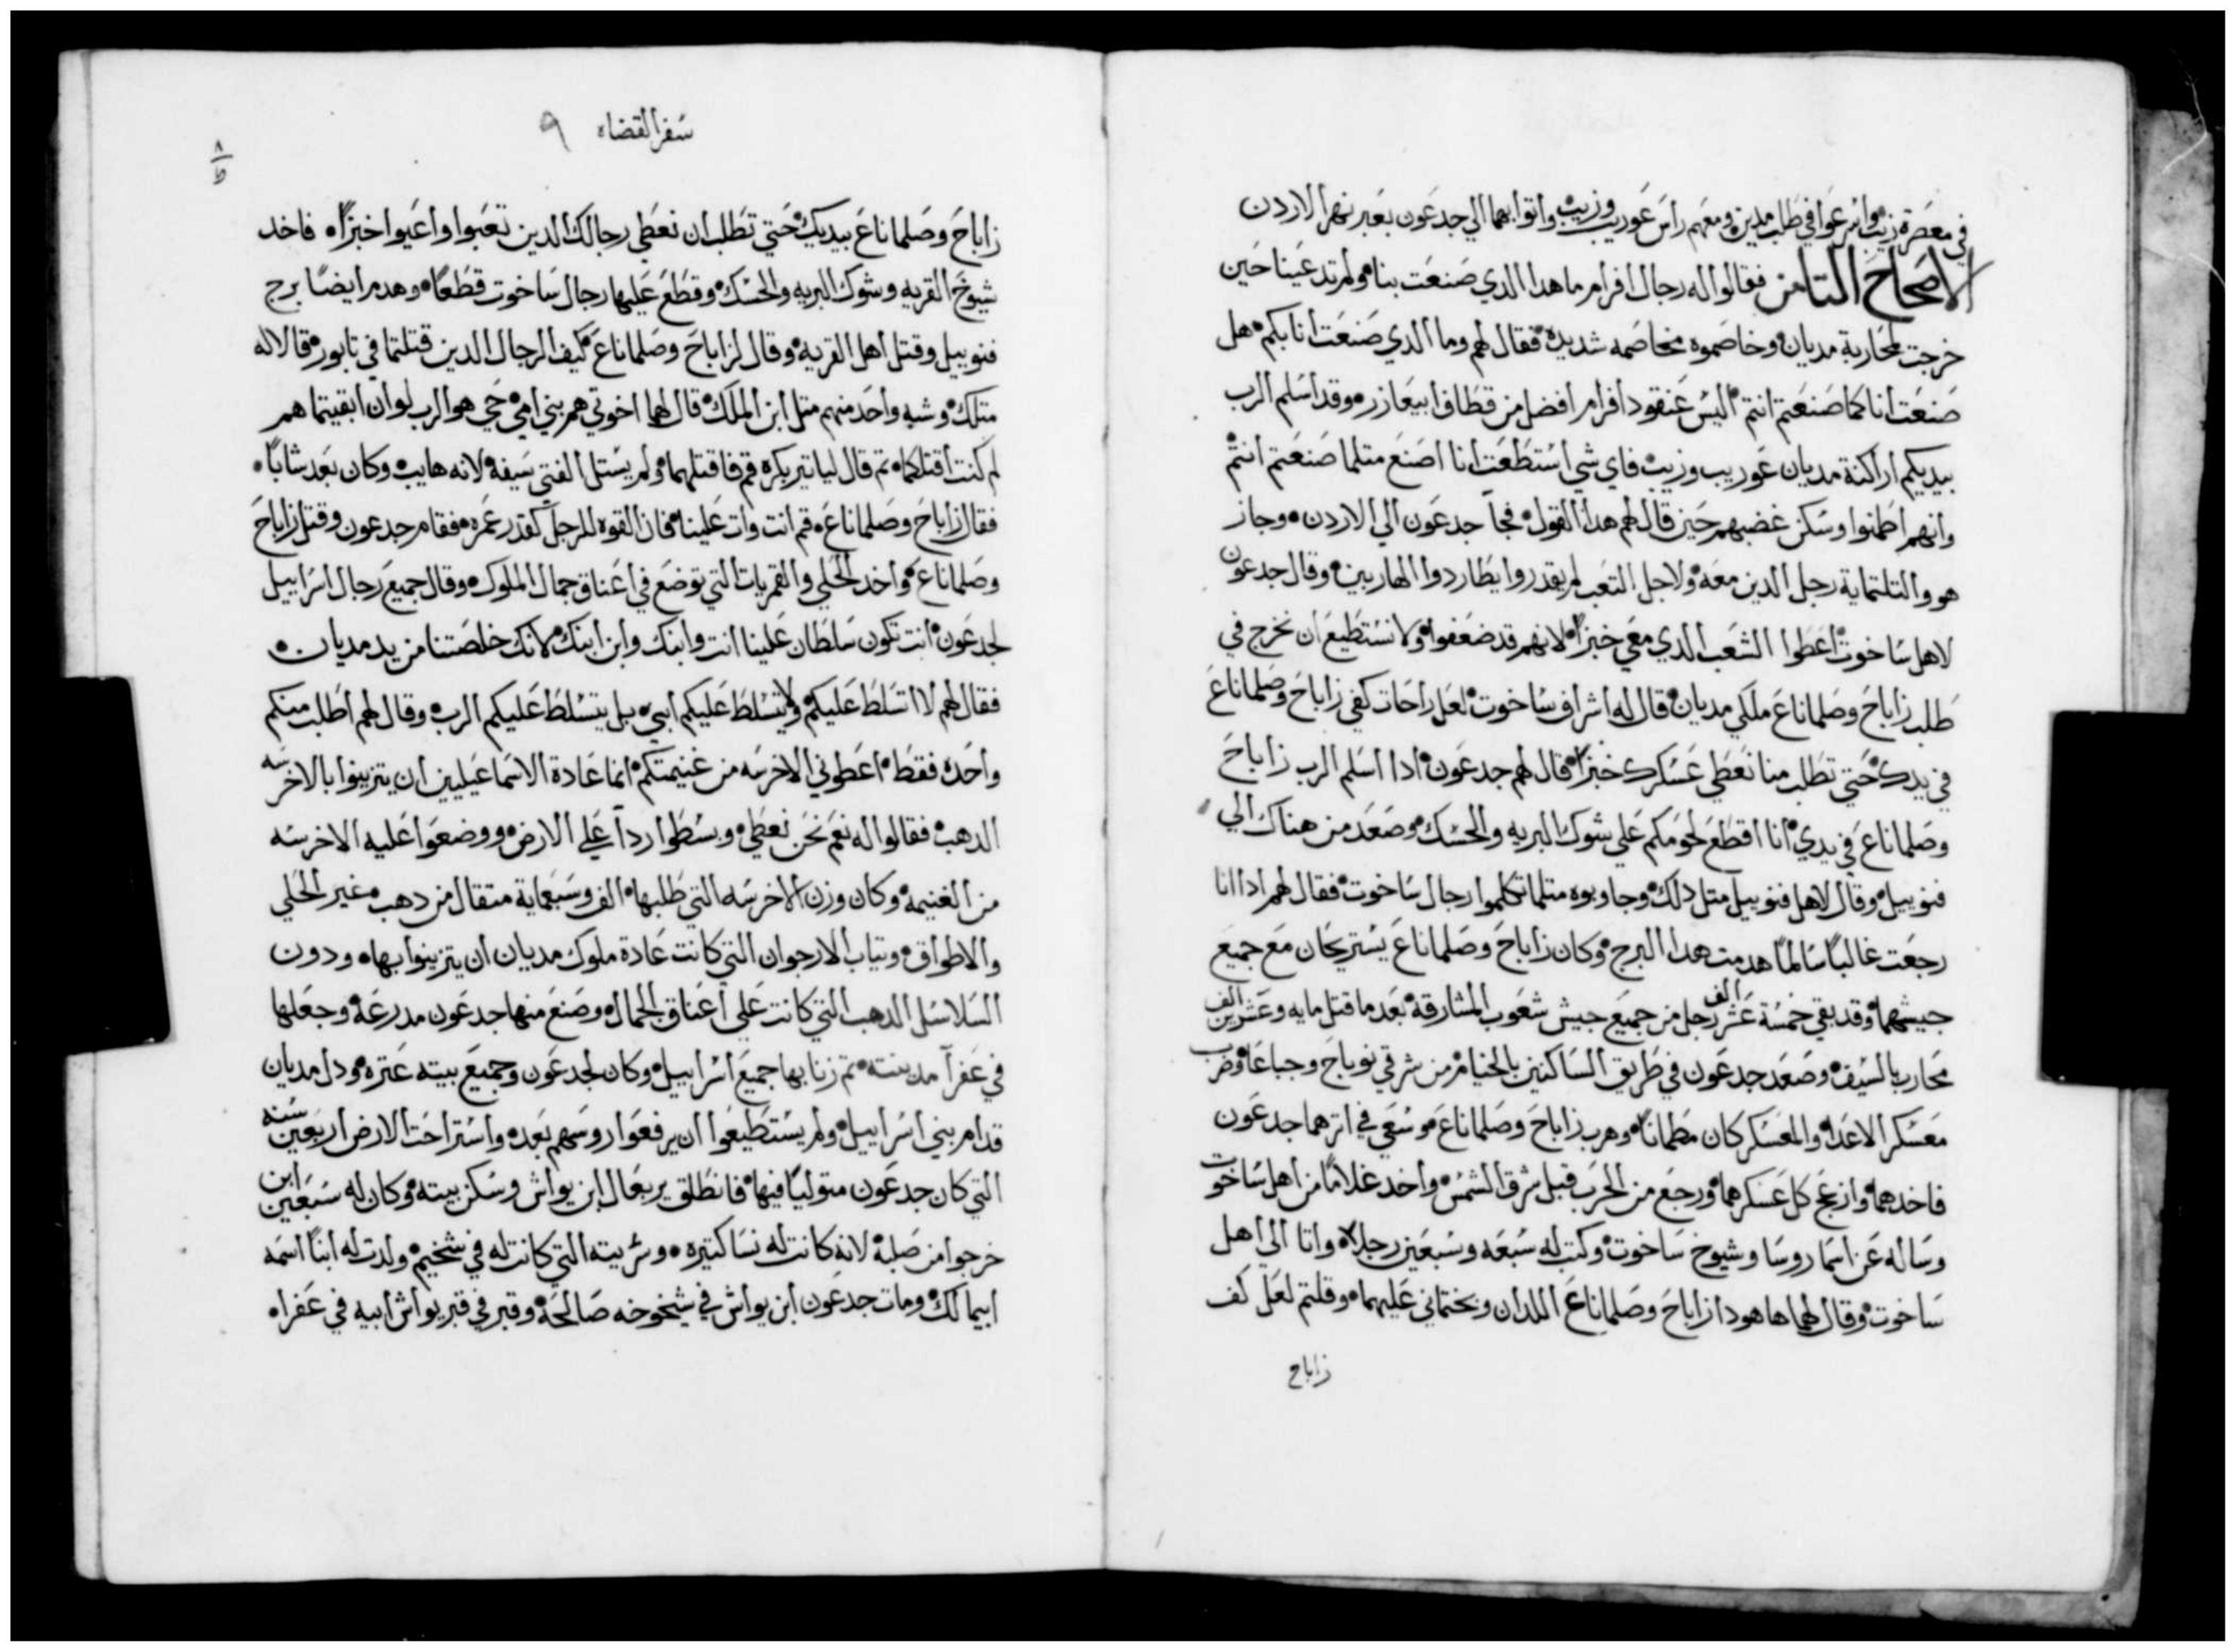 في معصرة زيب واسرعوا في طلب مدين ومعهم راس عوريب وزيب واتوا بهما الي جدعون بعبر نهر الاردن
الاصحاح التامن فقالوا له رجال افرام ما هدا الدي صنعت بنا ولم تدعينا حين
خرجت لمحاربة مديان وخاصموه مخاصمه شديدة فقال لهم وما الدي صنعت انا بكم هل
صنعت انا كما صنعتم انتم اليس عنقود افرام افضل من قطاف ابيعازر وقد اسلم الرب
بيديكم اراكنة مديان عوريب وزيب فاي شي استطعت انا اصنع متلما صنعتم انتم
وانهم اطمنوا وسكن غضبهم حين قال لهم هدا القول فجآ جدعون الي الاردن وجاز
هو والتلتماية رجل الدين معه ولاجل التعب لم يقدروا يطاردوا الهاربين وقال جدعون
لاهل ساخوت اعطوا الشعب الدي معي خبزاً لانهم قد ضعفوا ولا نستطيع ان نخرج في
طلب زاباح وصلماناع ملكي مديان قال له اشراف ساخوت لعل راحات كفي زاباح وصلماناع
في يدك حتي تطلب منا نعطي عسكرك خبزاً قال لهم جدعون ادا اسلم الرب زاباح
وصلماناع في يدي انا اقطع لحومكم علي شوك البريه والحسك وصعد من هناك الي
فنوييل وقال لاهل فنوييل متل دلك وجاوبوه متلما تكلموا رجال ساخوت فقال لهم ادا انا
رجعت غالباً سالماً هدمت هدا البرج وكان زاباح وصلماناع يستريحان مع جميع
جيشهما وقد بقي خمسة عشر الف رجل من جميع جيش شعوب المشارقة بعد ما قتل مايه وعشرين الف
محارب بالسيف وصعد جدعون في طريق الساكنين بالخيام من شرقي نوباح وجباعا وضرب
معسكر الاعدا والمعسكر كان مطماناً وهرب زاباح وصلماناع وسعي في اترهما جدعون
فاخدهما وازعج كل عسكرهما ورجع من الحرب قبل شرق الشمس واخد غلاماً من اهل ساخوت
وساله عن اسما روسا وشيوخ ساخوت وكتب له سبعه وسبعين رجلاً واتا الي اهل
ساخوت وقال لهم هاهودا زاباح وصلماناع اللدان وبختماني عليهما وقلتم لعل كف
زاباح
سفر القضاه ٩
٨
ط
زاباح وصلماناع بيديك حتي تطلب ان نعطي رجالك الدين تعبوا واعيوا خبزاً فاخد
شيوخ القريه وشوك البريه والحسك وقطع عليها رجال ساخوت قطعاً وهدم ايضاً برج
فنوييل وقتل اهل القرية وقال لزاباح وصلماناع كيف الرجال الدين قتلتما في تابور قالا له
متلك وشبه واحد منهم متل ابن الملك قال لهما اخوتي هم بني امي حي هو الرب لو ان ابقيتما هم
لم كنت اقتلكما تم قال لياتير بكره قم فاقتلهما ولم يستل الفتي سيفه لانه هايب وكان بعد شاباً
فقال زاباح وصلماناع قم انت وات علينا فان القوه للرجل كقدر عمره فقام جدعون وقتل زاباح
وصلماناع واخد الحلي والقمريات التي توضع في اعناق جمال الملوك وقال جميع رجال اسراييل
لجدعون انت تكون سلطان علينا انت وابنك وابن ابنك لانك خلصتنا من يد مديان
فقال لهم لا اتسلط عليكم ولا يتسلط عليكم ابني بل يتسلط عليكم الرب وقال لهم اطلب منكم
واحده فقط اعطوني الاخرسه من غنيمتكم انما عادة الاسماعيليين ان يتزينوا بالاخرسه
الدهب فقالوا له نعم نحن نعطي وبسطوا ردآ علي الارض ووضعوا عليه الاخرسه
من الغنيمة وكان وزن الاخرسه التي طلبها الف وسبعماية متقال من دهب غير الحلي
والاطواق وتياب الارجوان التي كانت عادة ملوك مديان ان يتزينوا بها ودون
السلاسل الدهب التي كانت علي اعناق الجمال وصنع منها جدعون مدرعة وجعلها
في عفرآ مدينته تم زنا بها جميع اسراييل وكان لجدعون وجميع بيته عتره ودل مديان
قدام بني اسراييل ولم يستطيعوا ان يرفعوا روسهم بعده واستراحت الارض اربعين سنه
التي كان جدعون متولياً فيها فانطلق يربعال ابن يواش وسكن بيته وكان له سبعين ابن
خرجوا من صلبه لانه كانت له نسا كتيره وسريته التي كانت له في شخيم ولدت له ابناً اسمه
ابيمالك ومات جدعون ابن يواش في شيخوخه صالحة وقبر في قبر يواش ابيه في عفراه